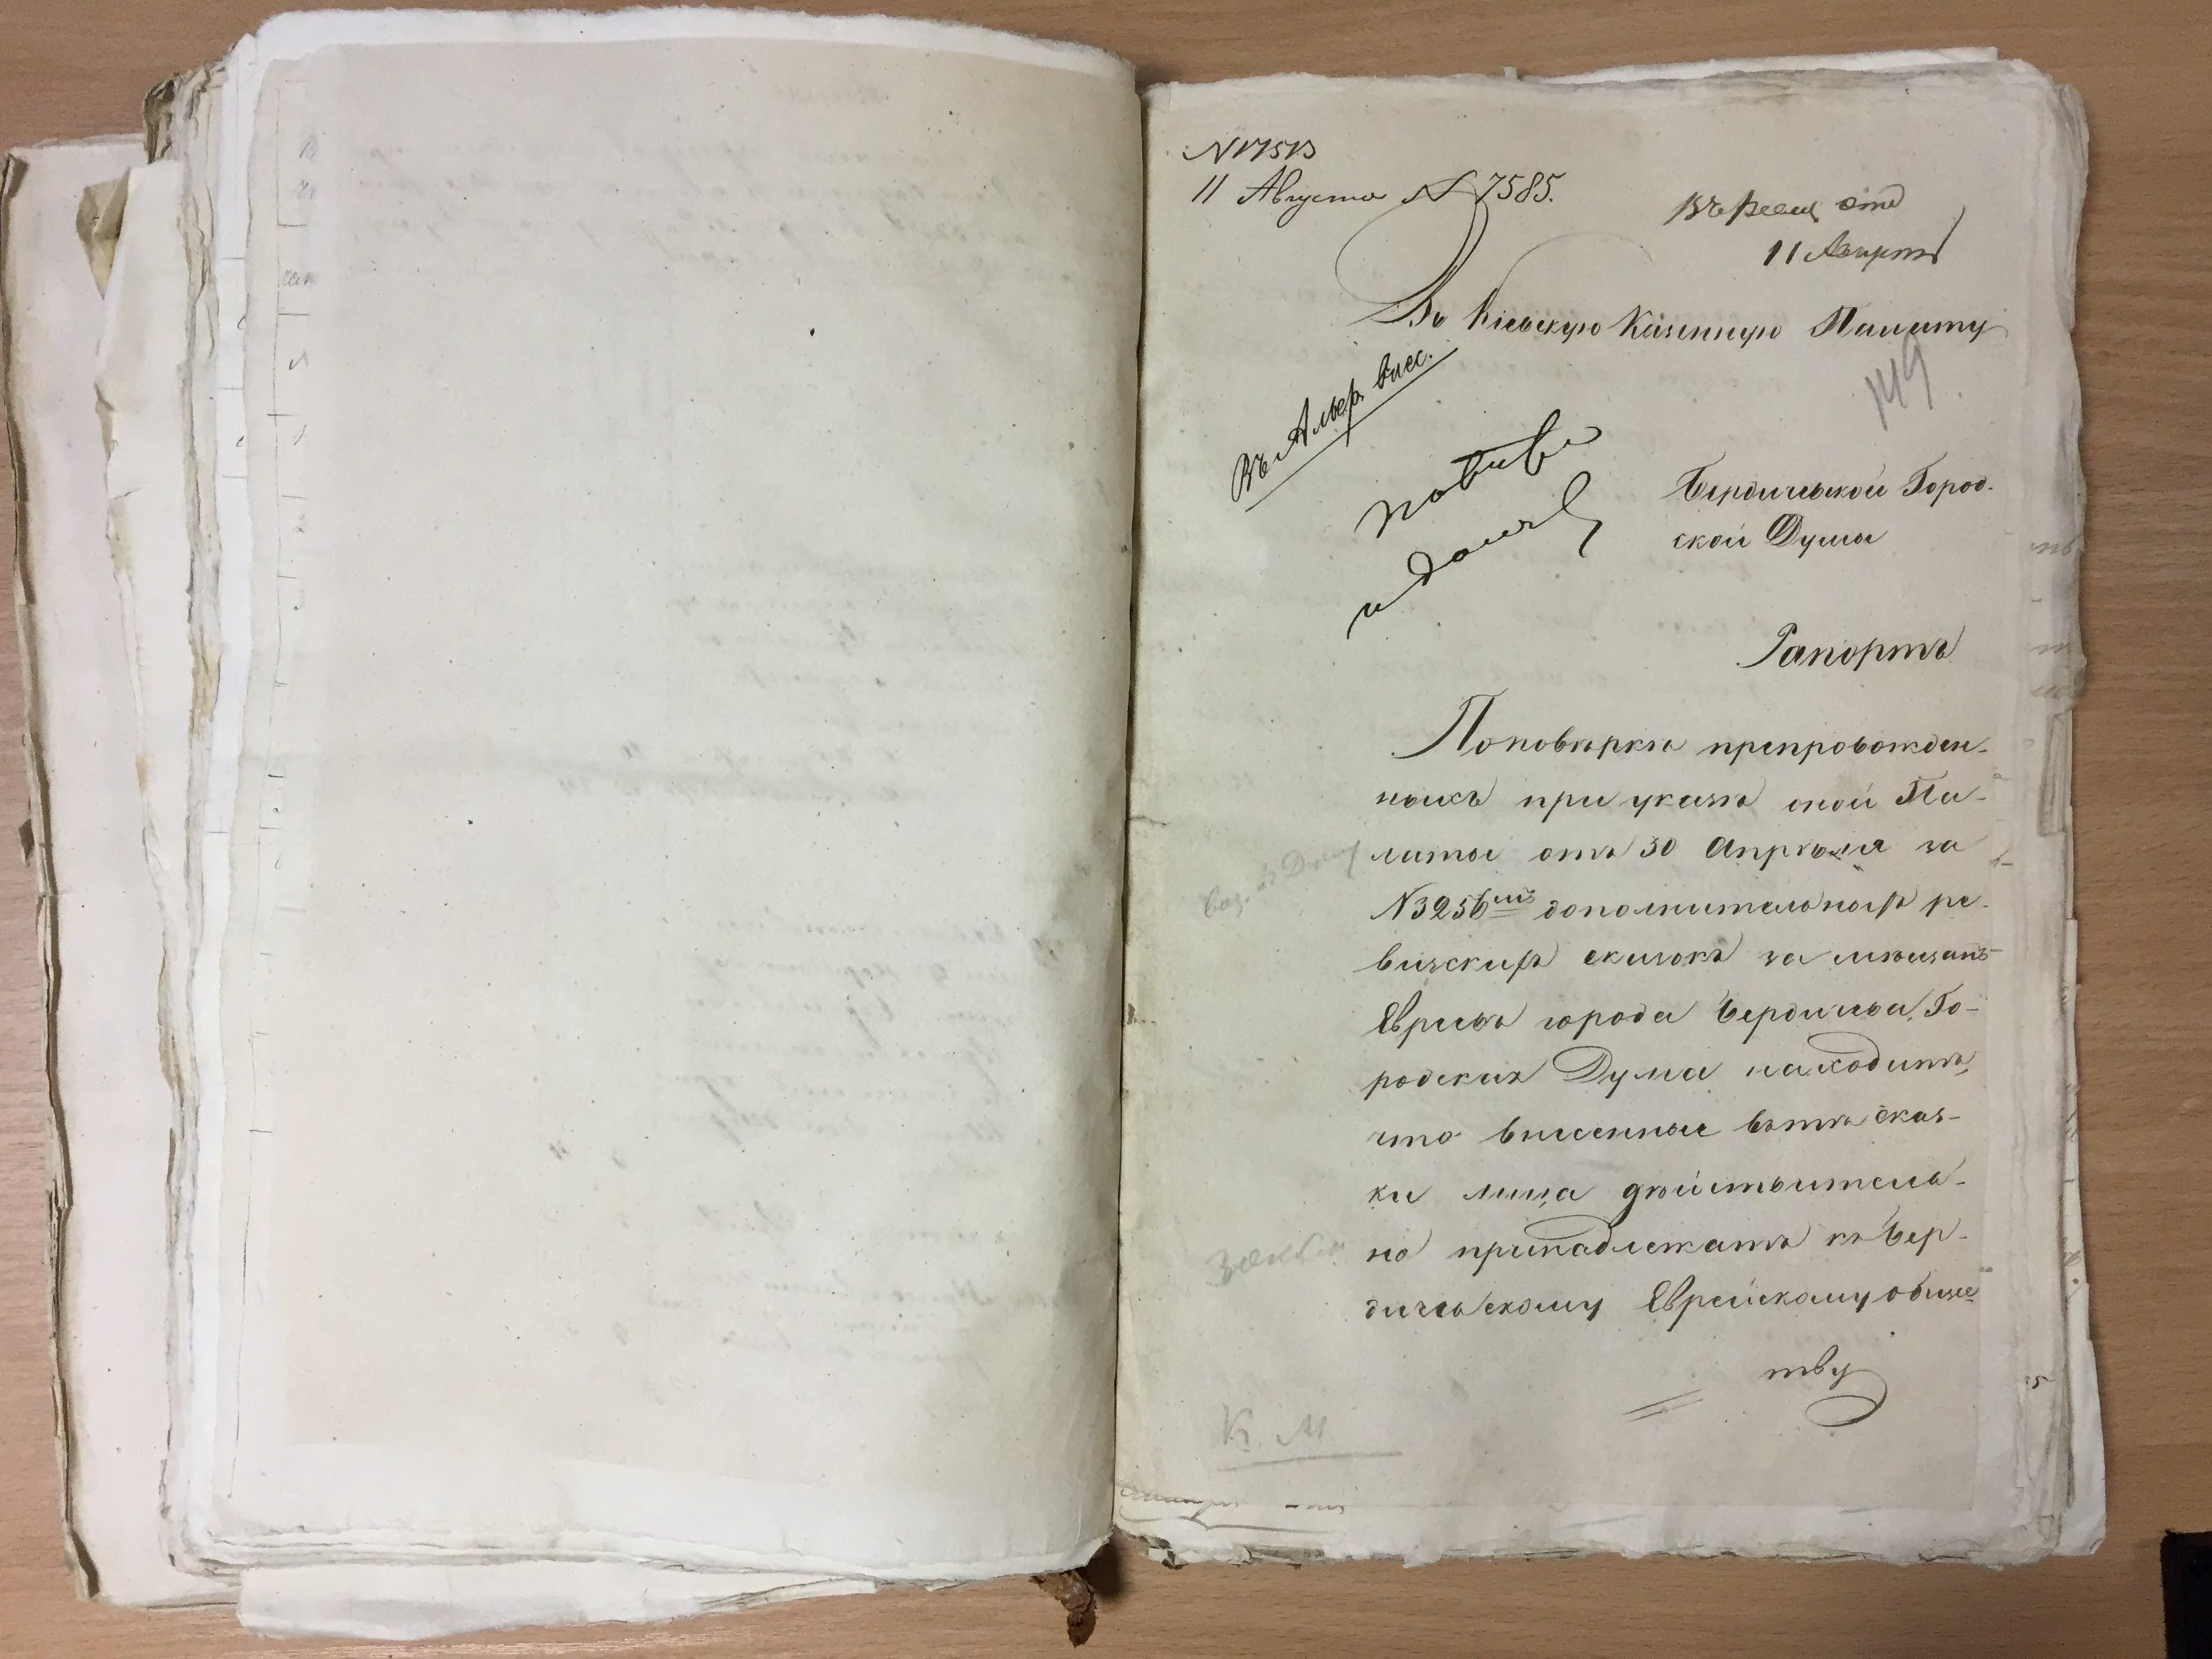 N 17513
11 Августа N 7585.
Въ Ревиз отд
11 Августа
Въ Кіевскую Казенную Палату
149
Въ Алфр. внес.
Бердичевской Город-
ской Думы
Рапортъ
Поповѣрке препровожден-
ныхъ при указѣ оной Па-
латы отъ 30 Апрѣля за
N 3256мъ дополнительныхъ ре-
визскихъ сказокъ за мѣщанъ
Евреевъ города Бердичева, Го-
родская Дума находитъ,
что внесенные вэти сказ-
ки лица дѣйствитель-
но принадлежатъ къ Бер-
дичевскому Еврейскому обще-
тву
К. М